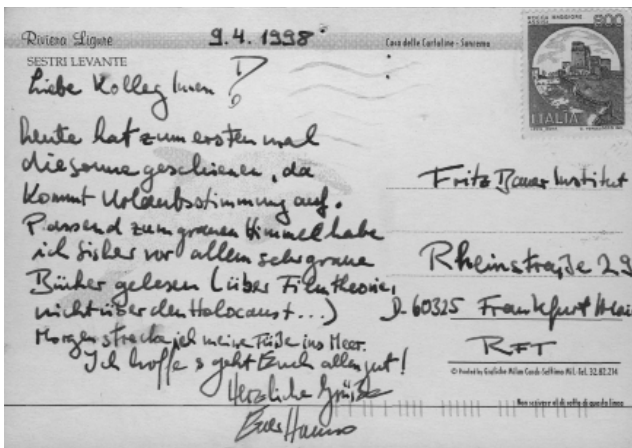 Riviera Ligure
9.4.1998
Casa delle Cartoline - Sanremo
SESTRI LEVANTE
ROCCA MAGGIORE 800
ITALIA
Liebe KollegInnen!
heute hat zum ersten mal
die sonne geschienen, da
kommt Urlaubsstimmung auf.
Passend zum grauen Himmel habe
ich bisher vor allem sehr graue
Bücher gelesen (über Filmtheorie,
nicht über den Holocaust...)
Morgen strecke ich meine Füße ins Meer.
Ich hoffe s geht Euch allen gut!
Herzliche Grüße
Euer Hanno
Fritz Bauer Institut
Rheinstraße 29
D-60325 Frankfurt Main
RFT
© Printed by Grafiche Milan Tel. 32.82.214
Non scrivere al di sotto di questa linea